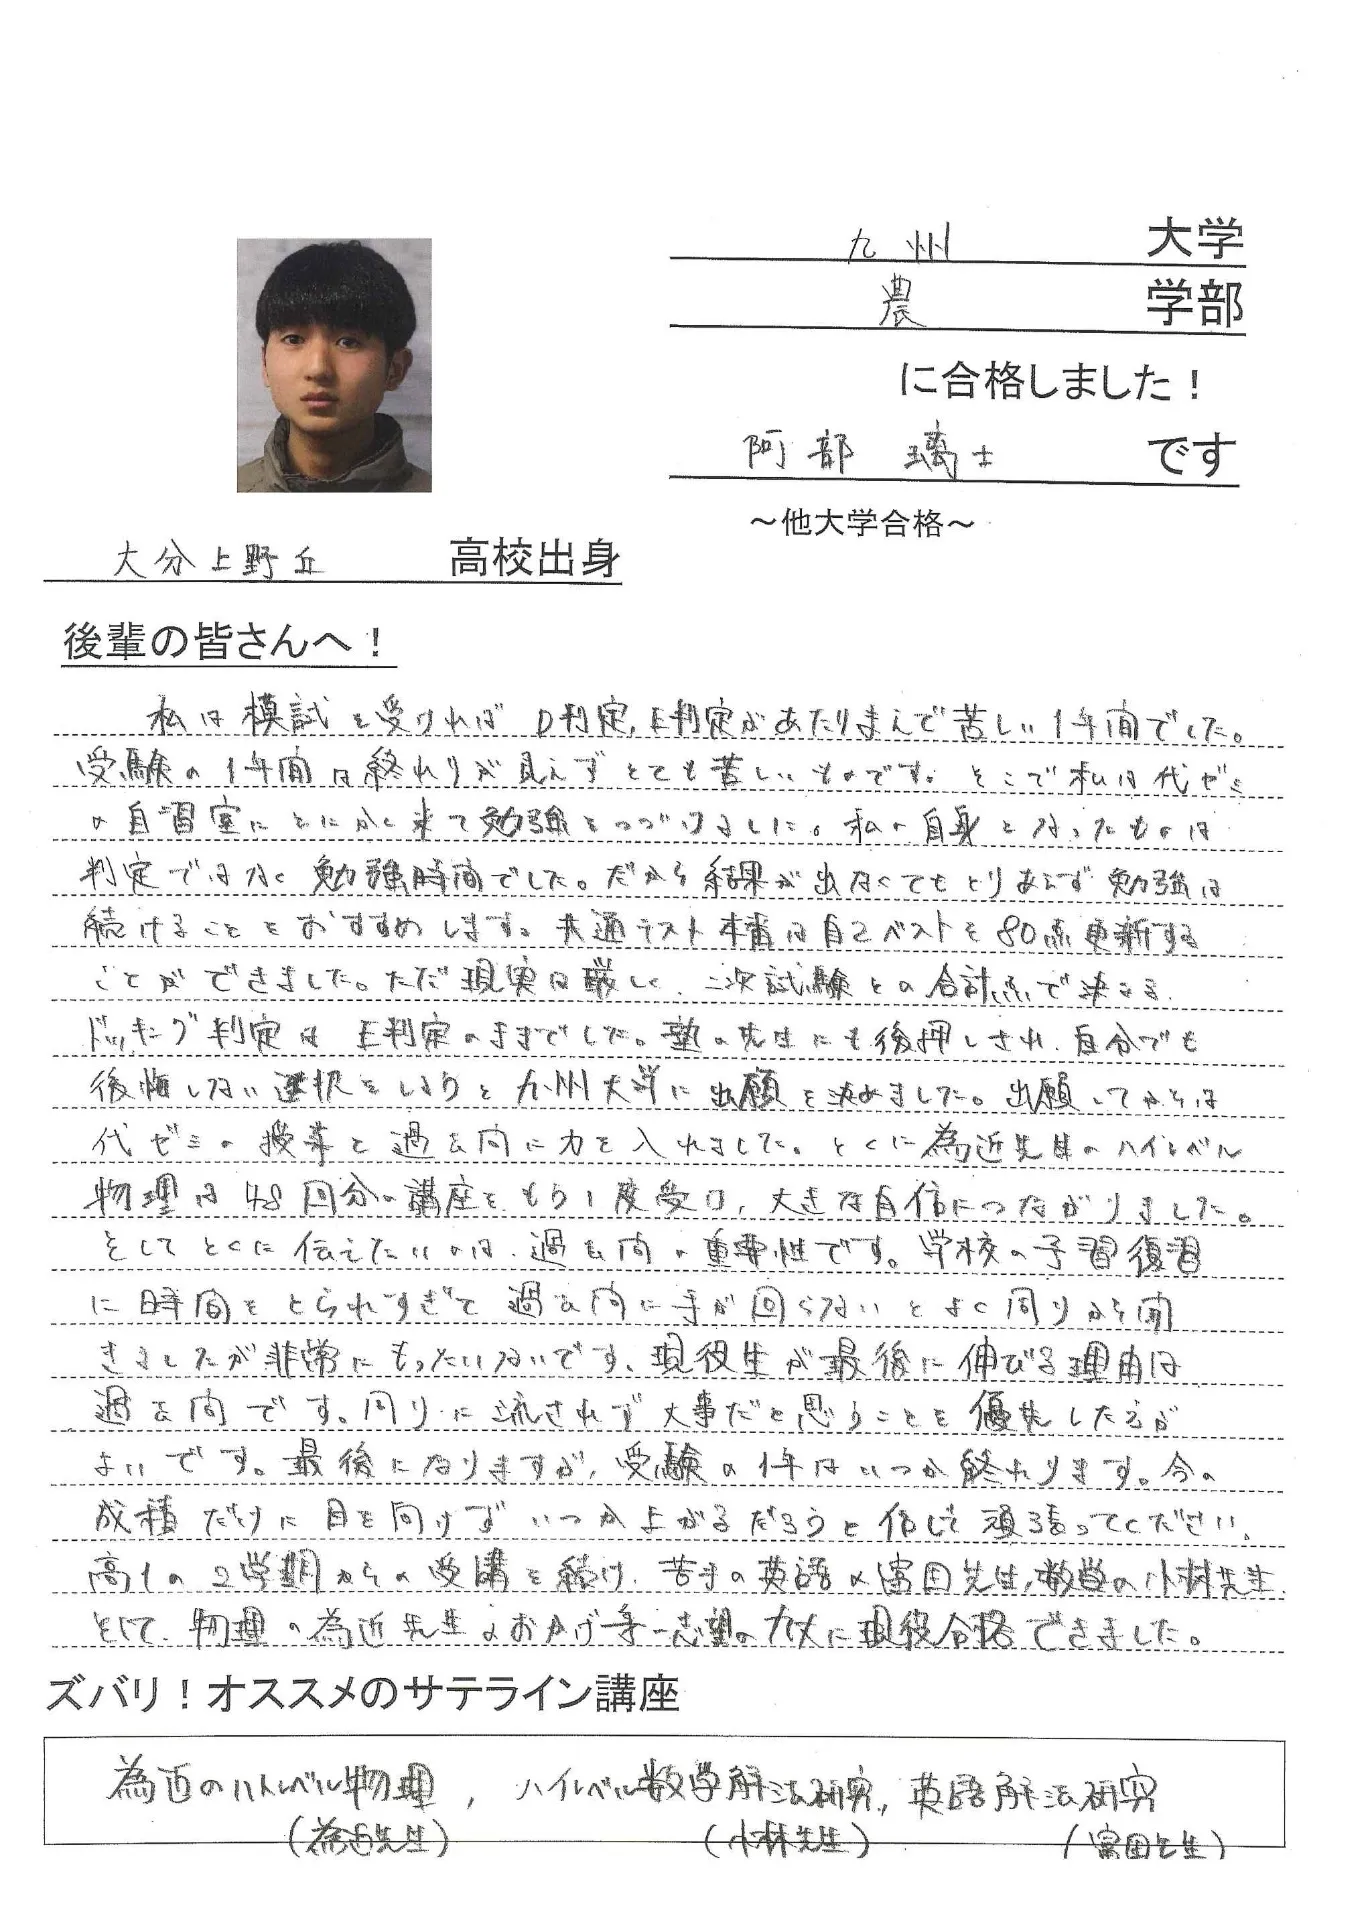 九州 大学
農 学部
に合格しました!
阿部 璃士 です
～他大学合格～
大分上野丘 高校出身
後輩の皆さんへ!
私は模試を受ければD判定,E判定があたりまえで苦しい1年間でした。
受験の1年間は終わりが見えずとても苦しいものです。そこで私は代ゼミ
の自習室にとにかく来て勉強をつづけました。私の自身となったものは
判定ではなく勉強時間でした。だから結果が出なくてもとりあえず勉強は
続けることをおすすめします。共通テスト本番は自己ベストを80点更新する
ことができました。ただ現実は厳しく、二次試験との合計点で決まる
ドッキング判定はE判定のままでした。塾の先生にも後押しされ、自分でも
後悔しない選択をしようと九州大学に出願を決めました。出願してからは
代ゼミの授業と過去問に力を入れました。とくに為近先生のハイレベル
物理は48回分の講座をもう1度受け,大きな自信につながりました。
そしてとくに伝えたいのは、過去問の重要性です。学校の予習復習
に時間をとられすぎて過去問に手が回らないとよく周りから聞
きましたが非常にもったいないです。現役生が最後に伸びる理由は
過去問です。周りに流されず大事だと思うことを優先した方が
よいです。最後になりますが,受験の1年はいつか終わります。今の
成績だけに目を向けずいつか上がるだろうと信じて頑張ってください。
高1の2学期からの受講を続け、苦手の英語の富田先生,数学の小林先生
そして、物理の為近先生のおかげで第一志望の九大に現役合格できました。
ズバリ!オススメのサテライン講座
為近のハイレベル物理, ハイレベル数学解法研究, 英語解法研究
(為近先生) (小林先生) (富田先生)